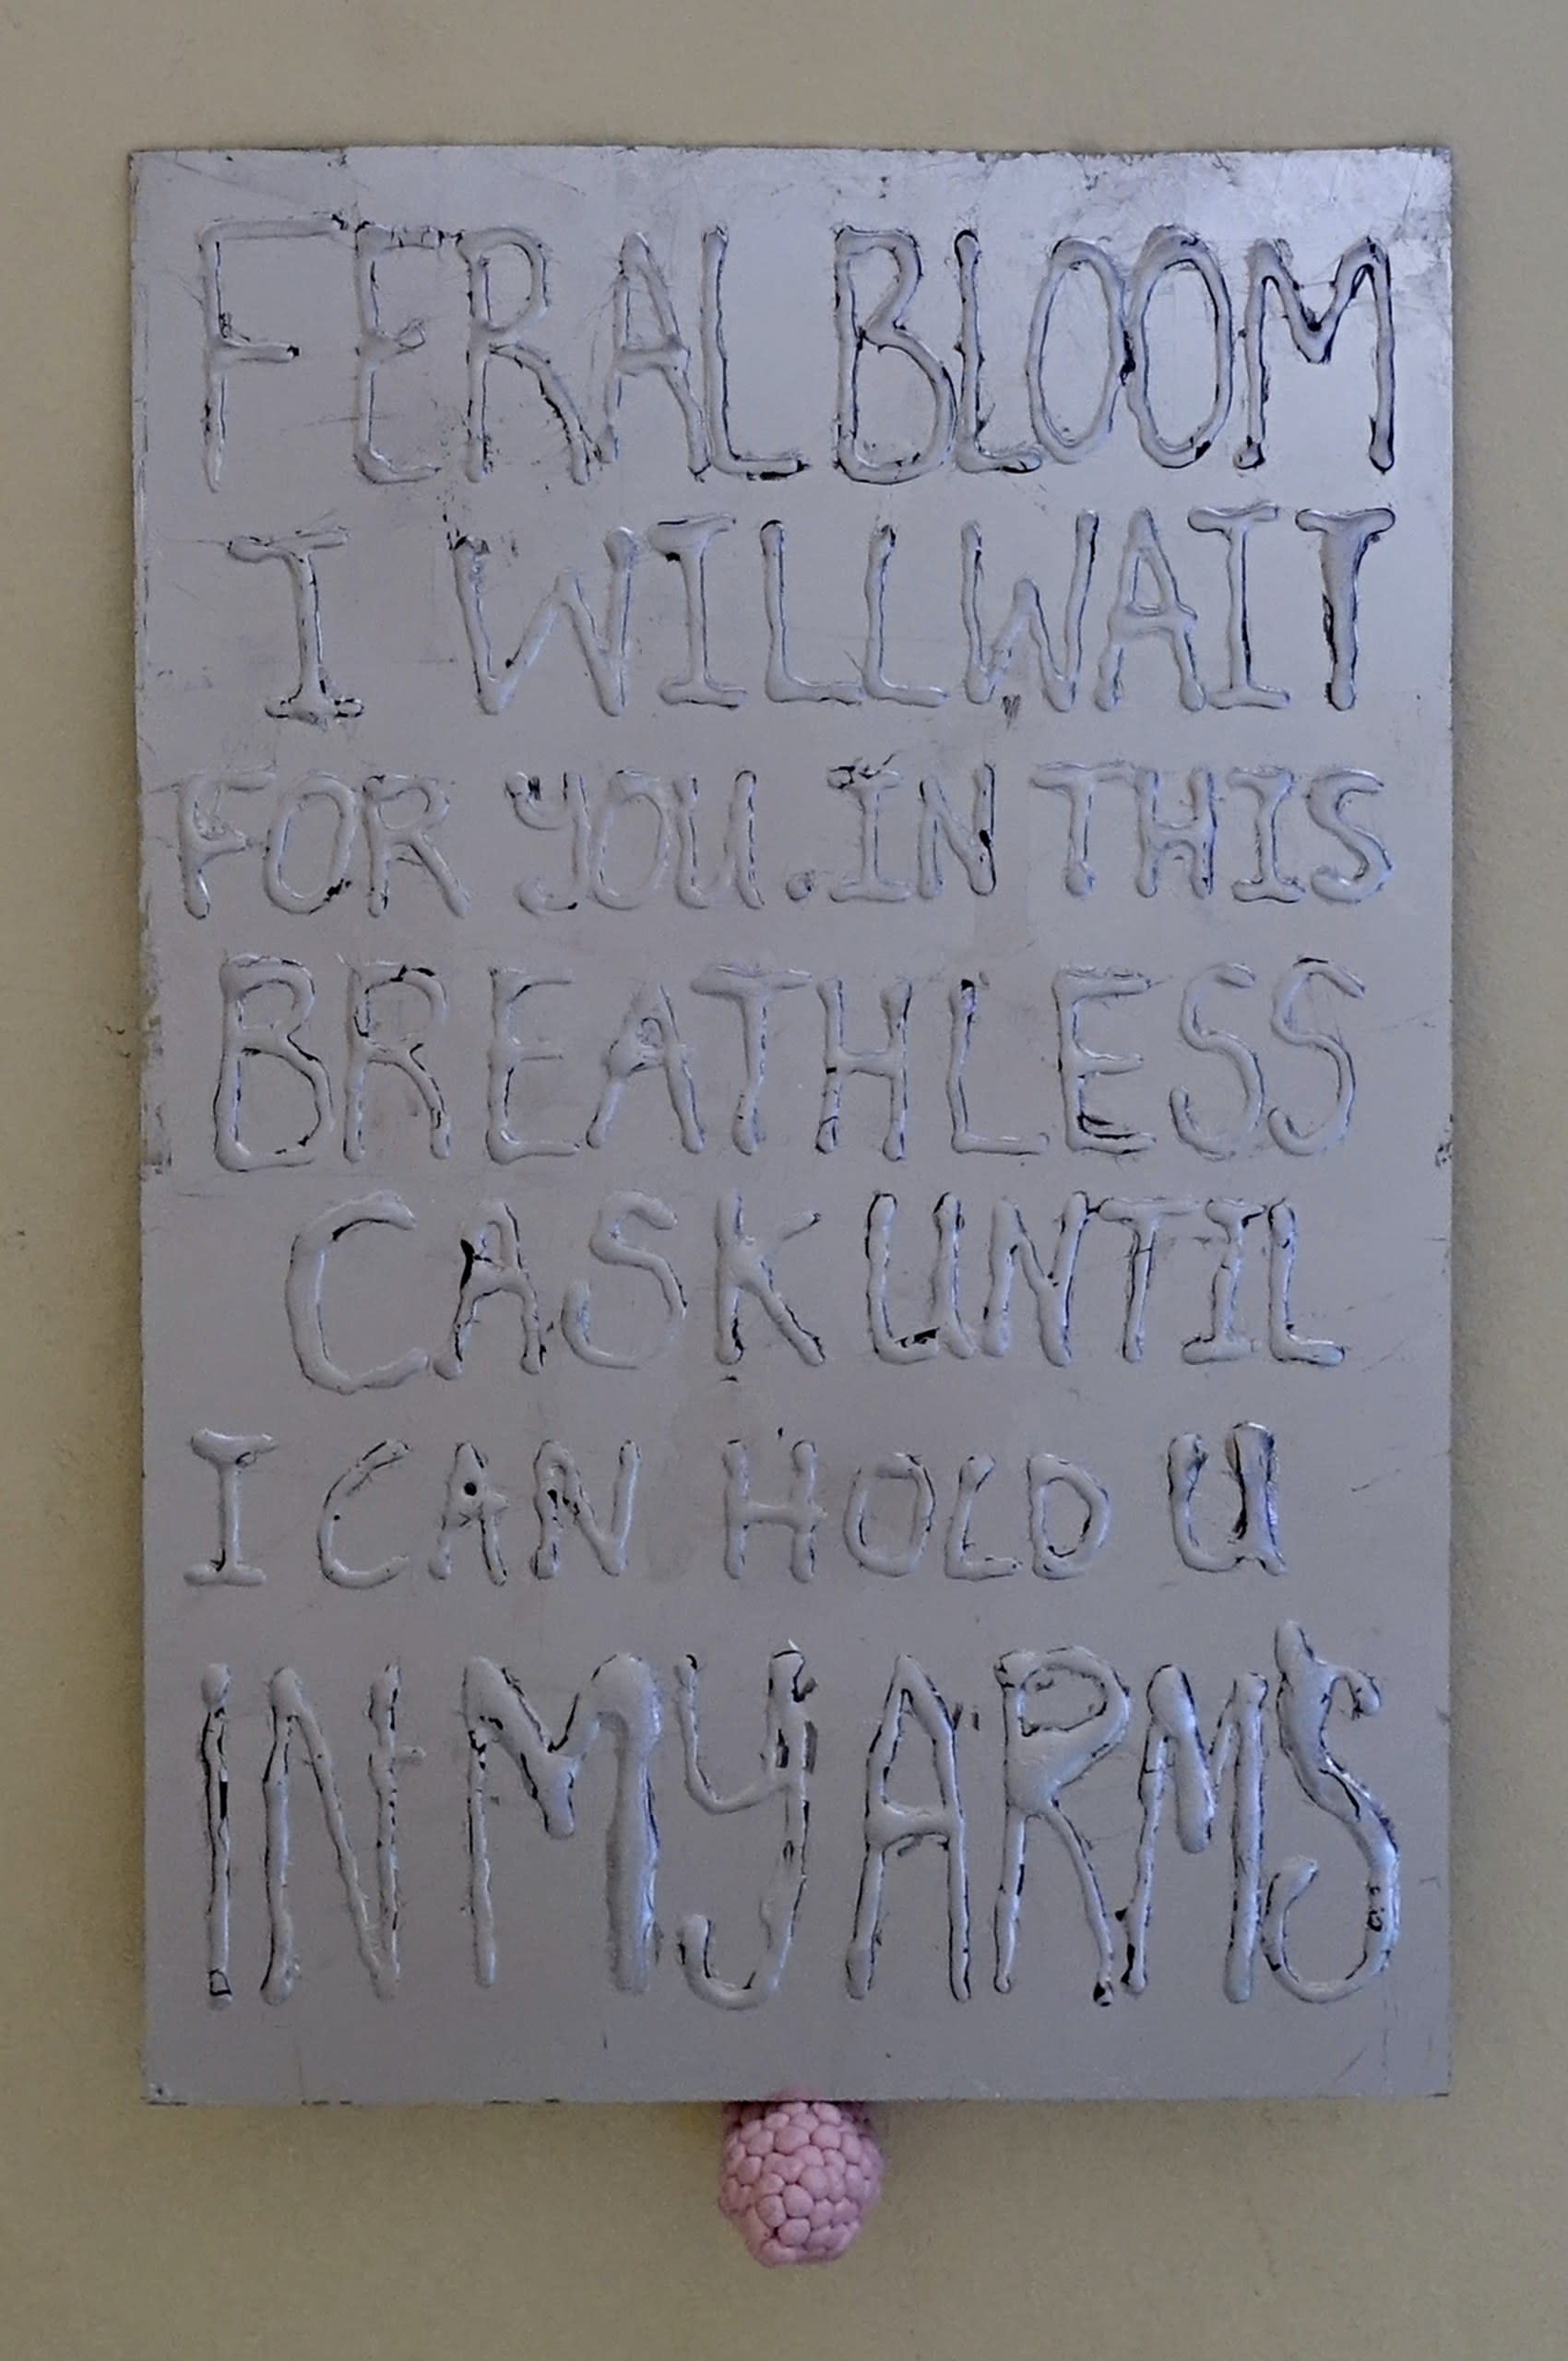 FERAL BLOOM
I WILL WAIT
FOR YOU. IN THIS
BREATHLESS
CASK UNTIL
I CAN HOLD U
IN MY ARMS